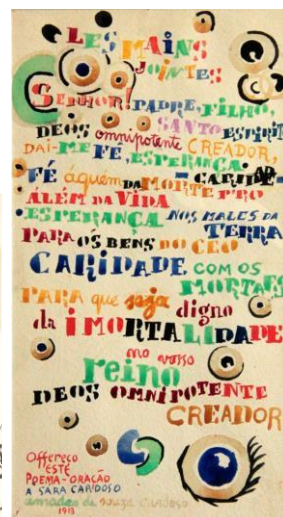 LES MAINS
JOINTES
SENHOR! PADRE, FILHO,
DEOS omnipotente SANTO ESPIRIT
CREADOR,
DAI-ME FÉ, ESPERANÇA.
FÉ áquém DA MORTE PRO
ALÉM DA VIDA
ESPERANÇA NOS MALES DA
TERRA
PARA OS BENS DO CEO
CARIDADE COM OS
MORTAES
PARA que seja digno
da IMORTALIDADE
no vosso
reino
DEOS OMNIPOTENTE
CREADOR
Offereço
ESTE
POEMA-ORAÇÃO
A SARA CARDOSO
amadeo de souza cardoso
1913